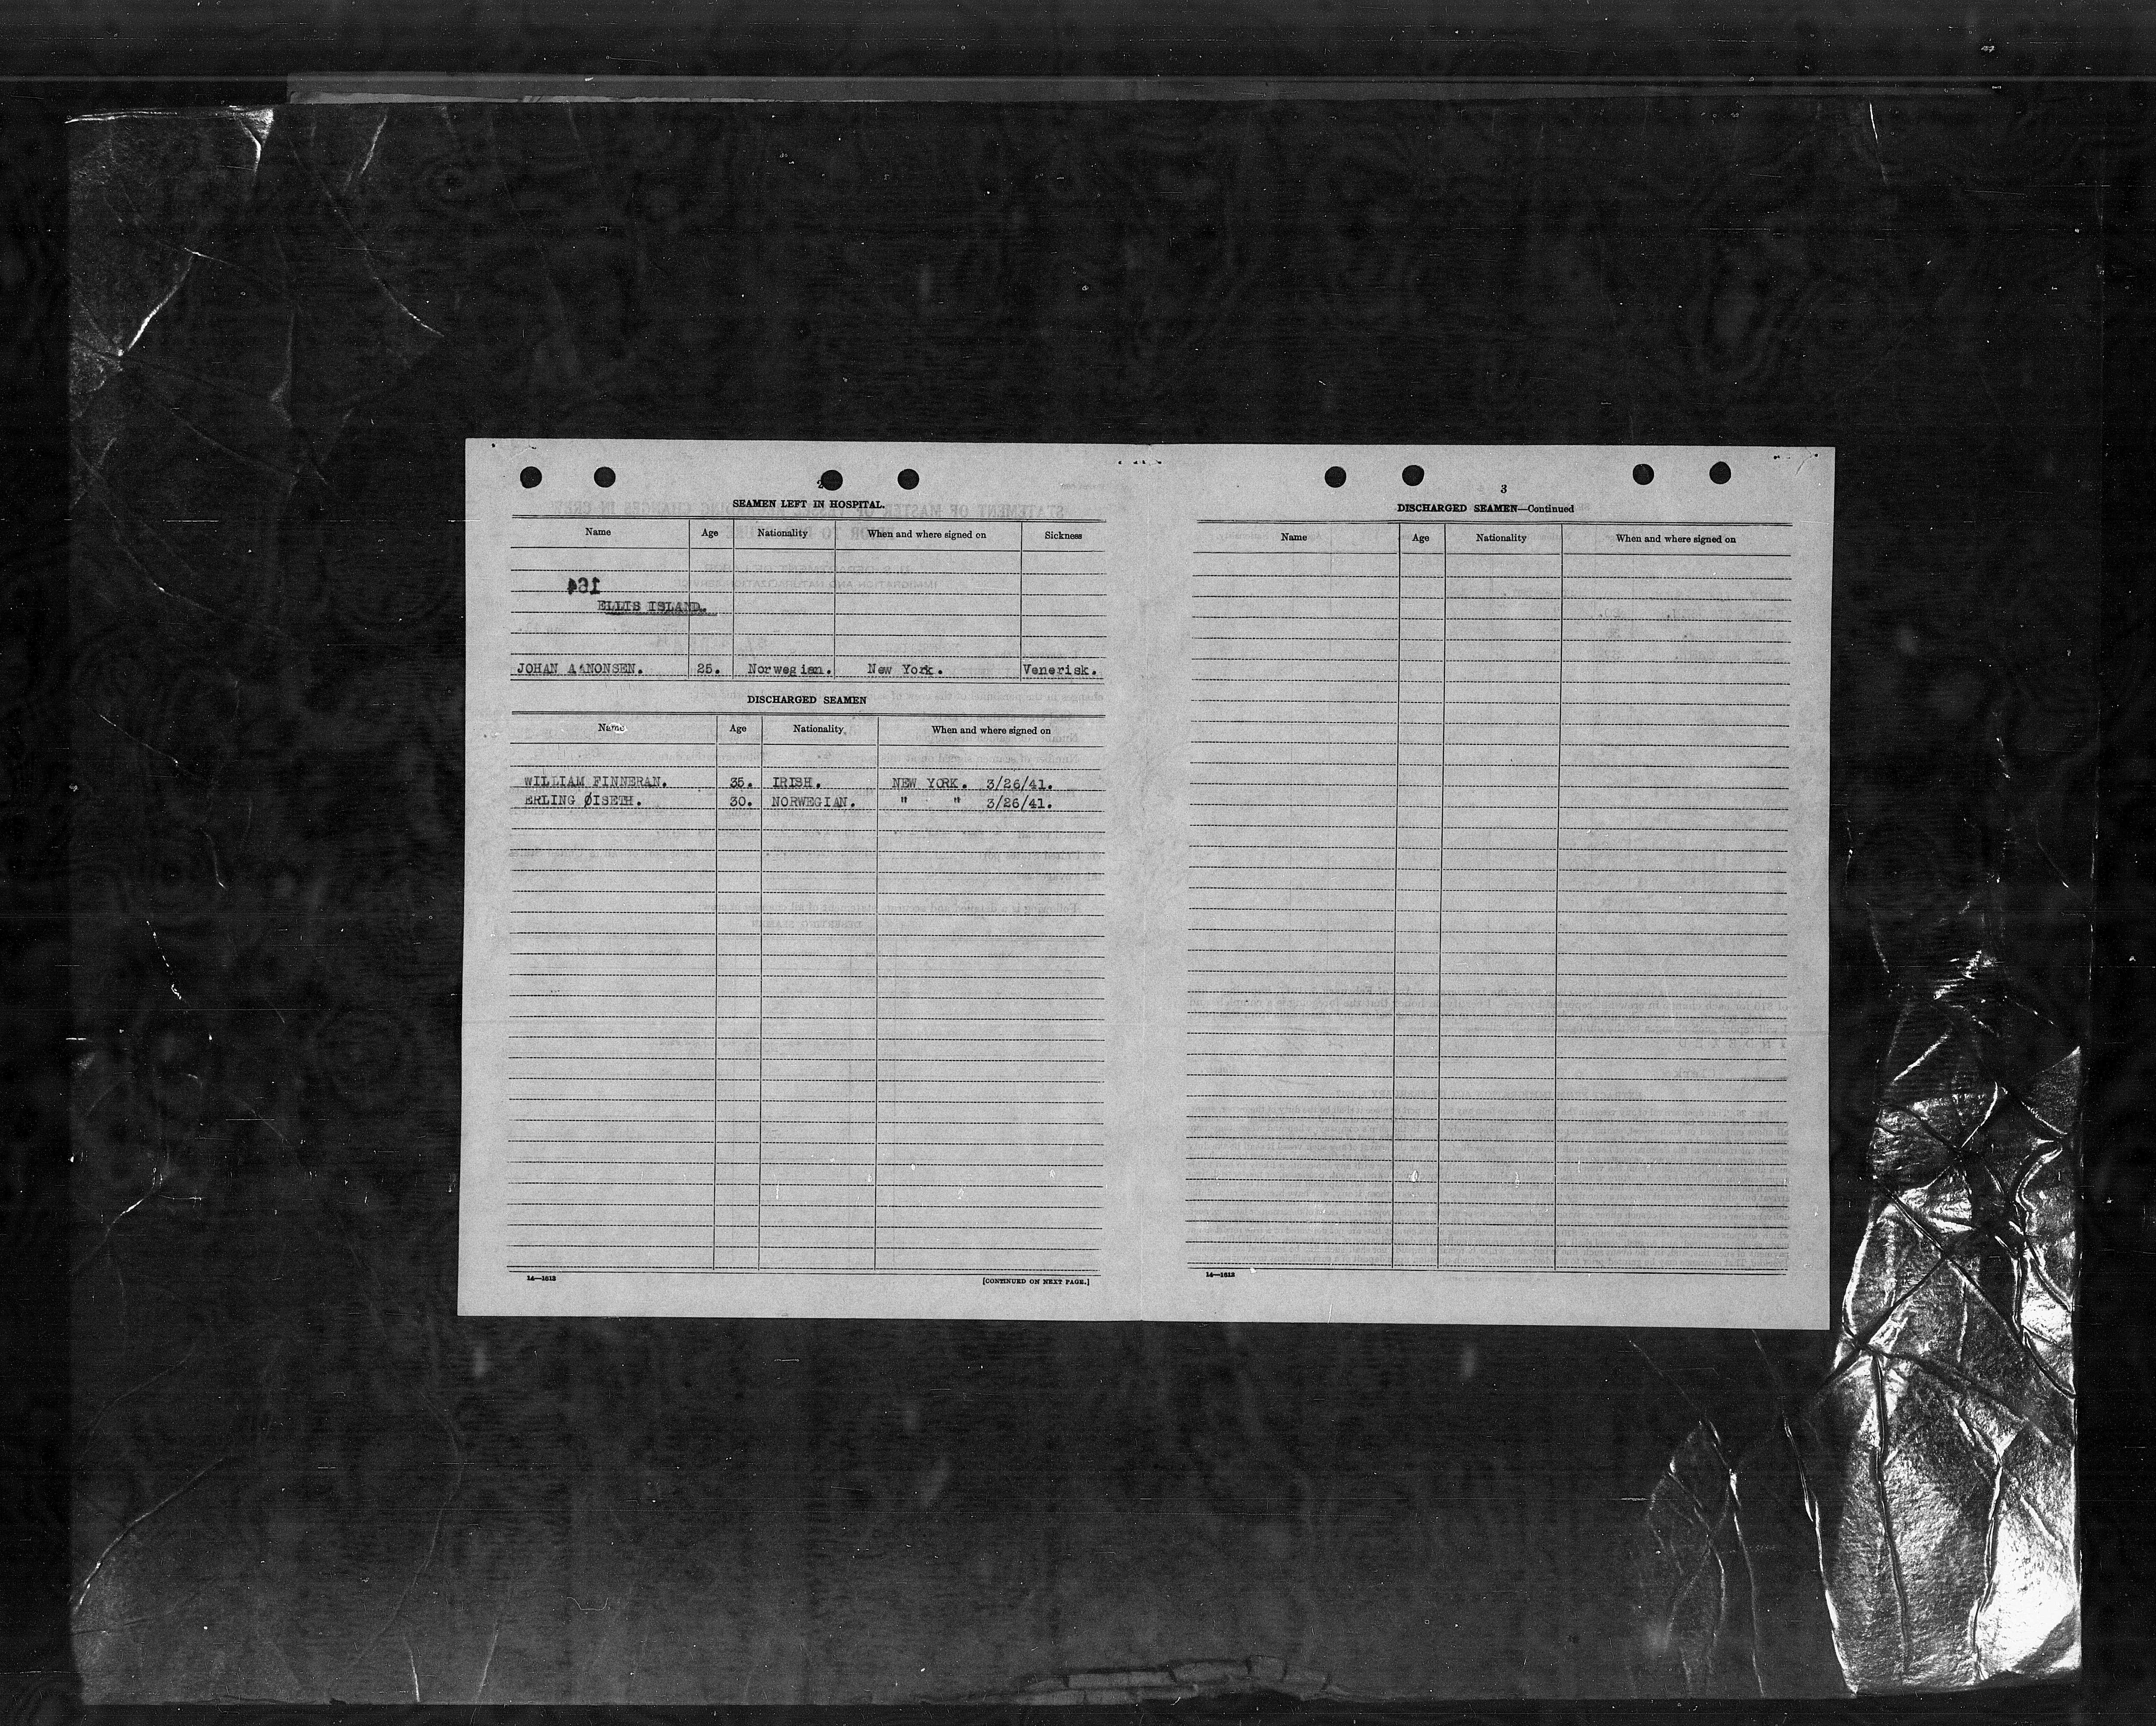 2
SEAMEN LEFT IN HOSPITAL
Name Age Nationality When and where signed on Sickness
164
ELLIS ISLAND.
JOHAN AANONSEN. 25. Norwegian. New York. Venerisk.
DISCHARGED SEAMEN
Name Age Nationality When and where signed on
WILLIAM FINNERAN. 35. IRISH. NEW YORK. 3/26/41.
ERLING ØISETH. 30. NORWEGIAN. " " 3/26/41.
14—1613 [CONTINUED ON NEXT PAGE.]
3
DISCHARGED SEAMEN—Continued
Name Age Nationality When and where signed on
14—1613